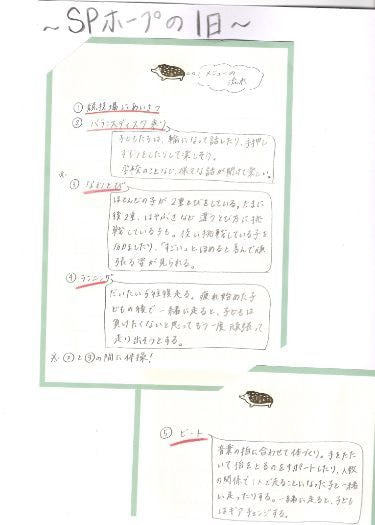 ～SPホープの1日～
メニューの
流れ
① 競技場にあいさつ
② バランスディスク乗り
子どもたちは、輪になって話したり、手押し
ずもうをしたりして楽しそう。
学校のことなど、様々な話が聞けて楽しい。
※
③ なわとび
ほとんどの子が2重とびをしている。たまに
後2重、はやぶさなど違うとび方に挑
戦している子も。使い挑戦している子を
応援したり、「すごい」とほめると喜んで頑
張る姿が見られる。
④ ランニング
だいたい5往復走る。疲れ始めた子
どもの横で一緒に走ると、子どもは
負けたくないと思ってもう一度頑張って
走り出そうとする。
※②と③の間に体操！
⑤ ビート
音楽の拍に合わせて体づくり。手をたた
いて拍をとるのをサポートしたり、人数
の関係で1人で走ることになった子と一緒
に走ったりする。一緒に走ると、子ども
はギアチェンジする。